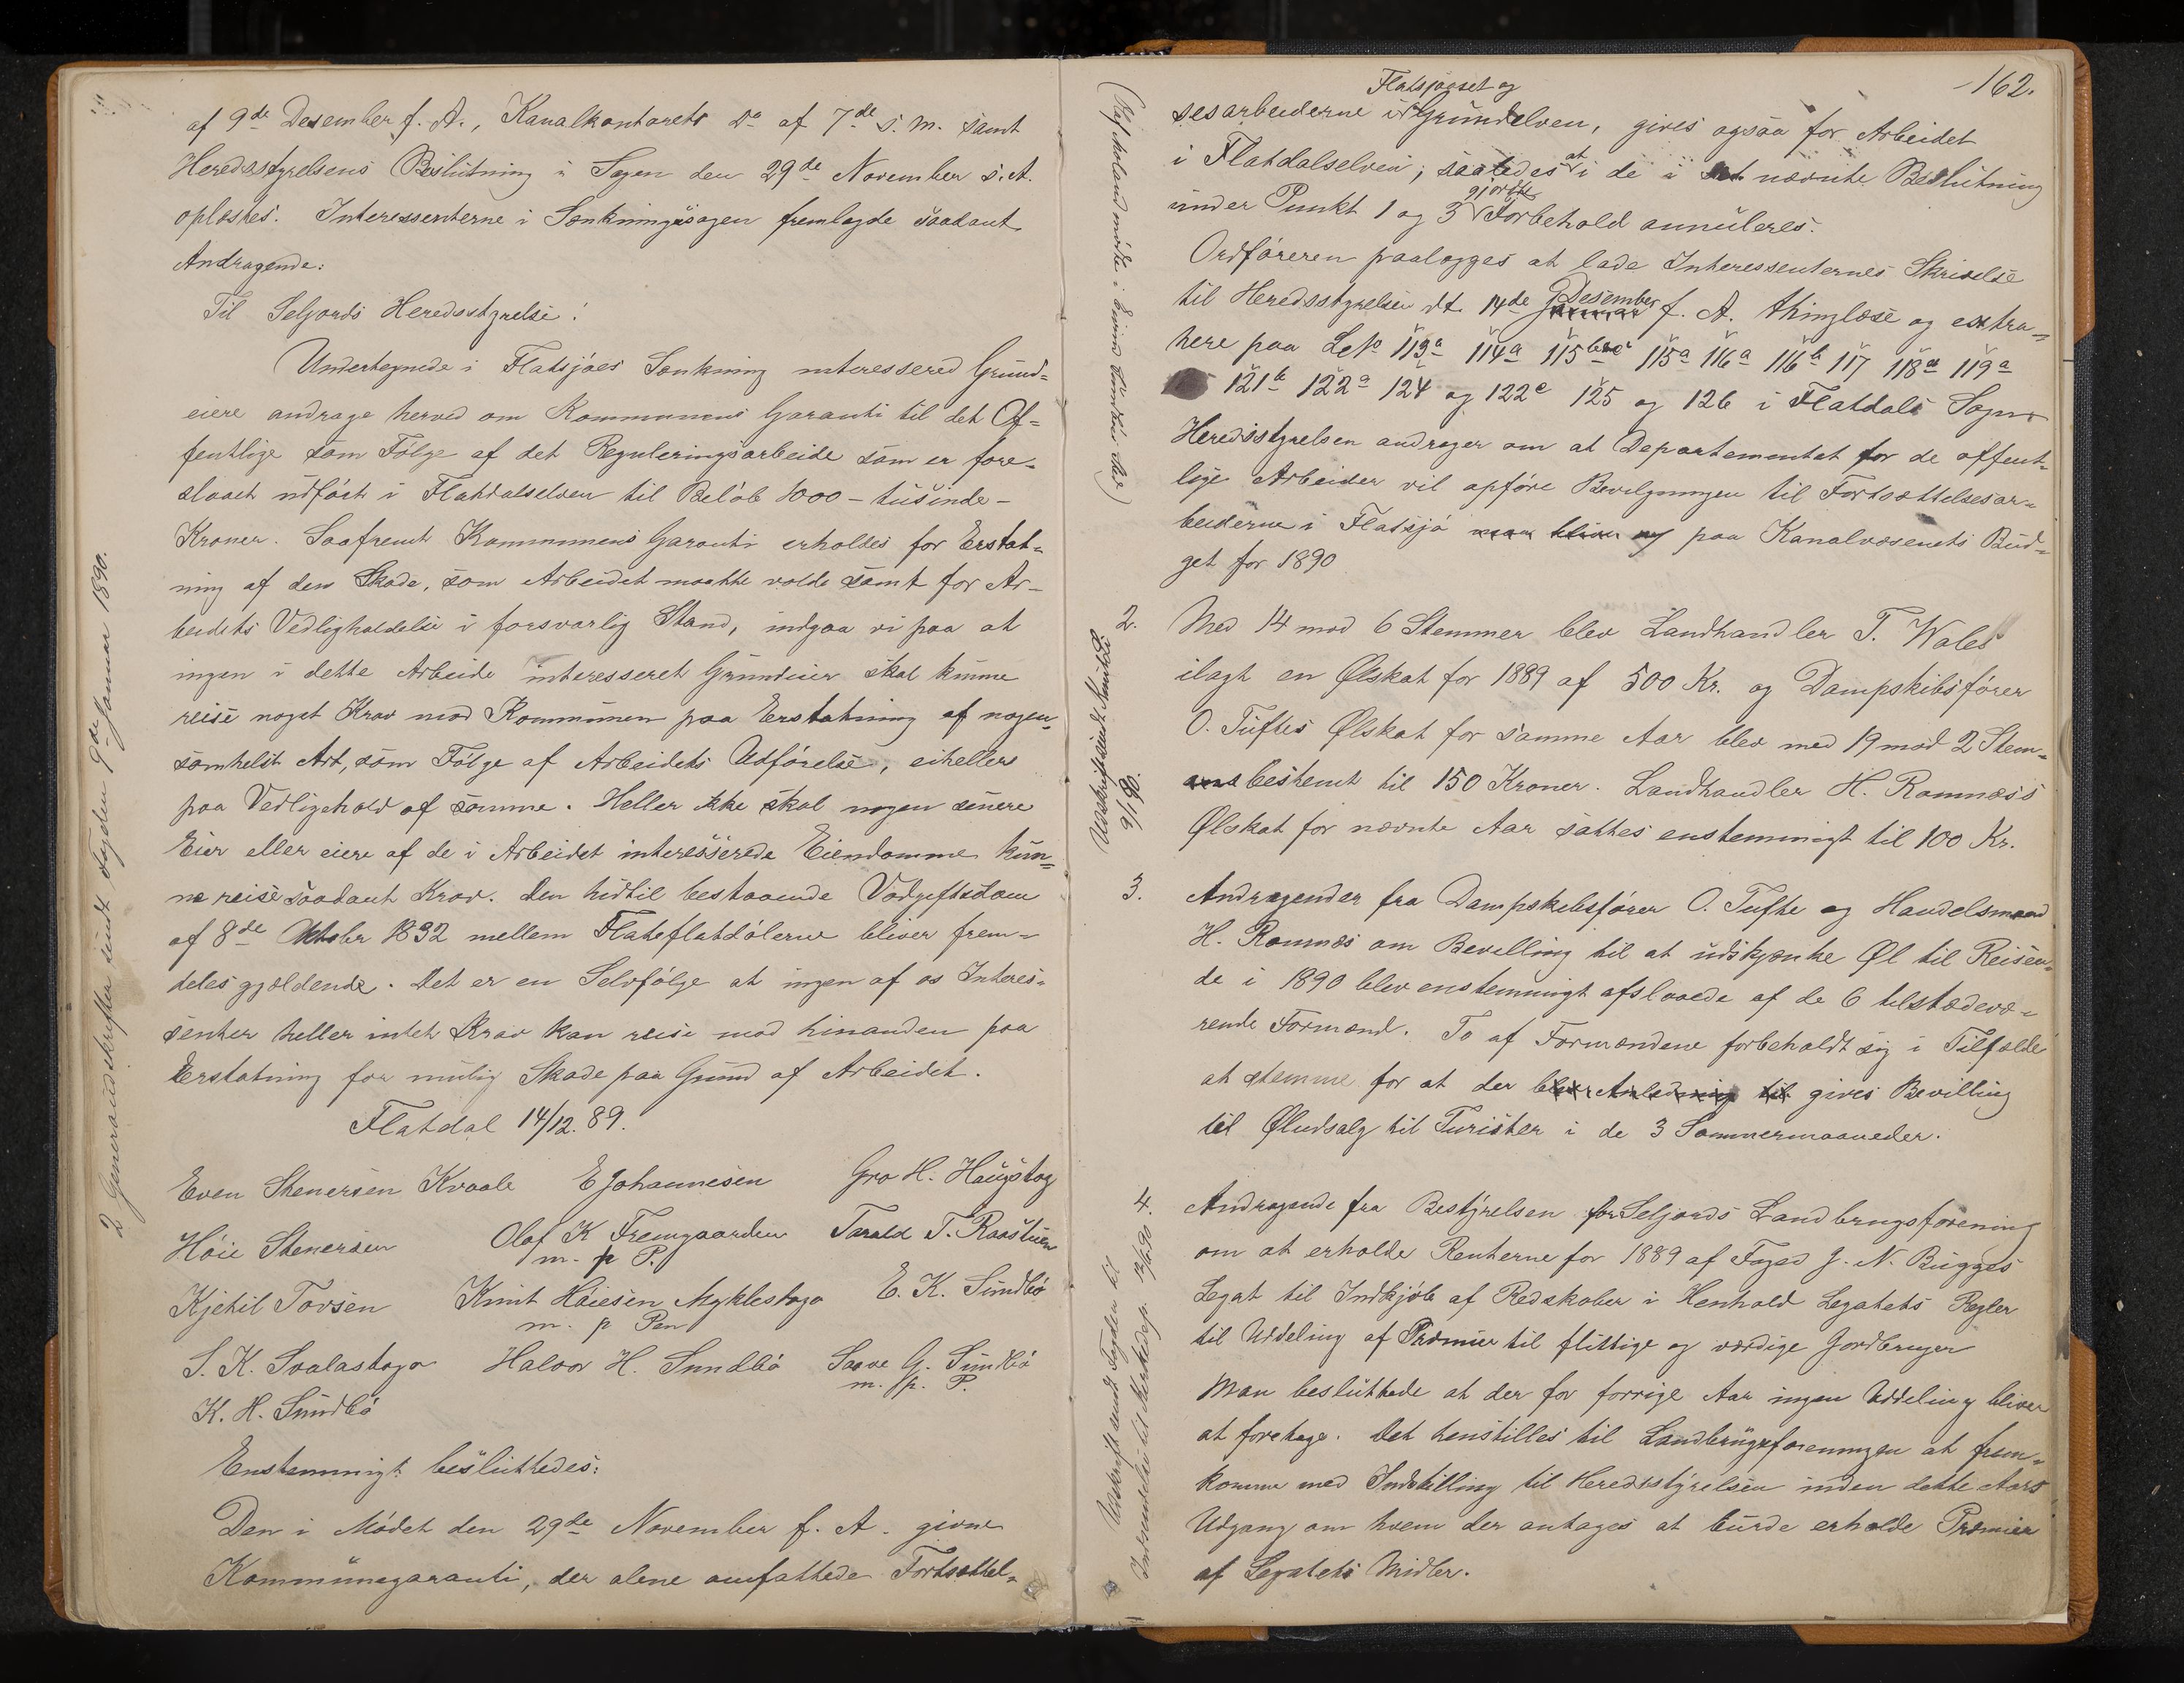 af 9de Desember f. A., Kanalkontorets Do af 7de s. m. samt
Heredsstyrelsens Beslutning i Sagen den 29de November s. A.
oplæstes. Interessenterne i Sænkningssagen fremlagde saadant
Andragende:
Til Seljords Heredsstyrelse!
Undertegnede i Flatsjøes Sænkning interessered Grund=
eiere andrage herved om Kommunens Garanti til det Of=
fentlige som Følge af det Reguleringsarbeide som er fore=
slaaet udført i Flatdalselven til Beløb 1000 - tusinde -
Kroner. Saafremt Kommunens Garanti erholdes for Erstat=
ning af den Skade, som Arbeidet maatte volde samt for Ar-
beidets Vedligholdelse i forsvarlig Stand, indgaa vi paa at
ingen i dette Arbeide interesseret Grundeier skal kunne
reise noget Krav mod Kommunen paa Erstatning af nogen=
somhelst Art, som Følge af Arbeidets Udførelse, eiheller
paa Vedligehold af samme. Heller ikke skal nogen senere
Eier eller eiere af de i Arbeidet interesserede Eiendomme kun=
ne reise saadant Krav. Den hidtil bestaaende
af 8de Oktober 1832 mellem Flateflatdølerne bliver frem=
deles gjældende. Det er en Selvfølge at ingen af os Interes=
senter heller intet Krav kan reise mod hinanden paa
Erstatning for mulig Skade paa Grund af Arbeidet.
Flatdal 14/12. 89.
Even Stenersen Kvaale E Johannesen Gro H. Haugstog
Høie Stenersen Olaf K Fremgaarden Tarald T. Raastuen
m. p P.
Kjetil Tovsen Knut Høiesen Myklestoga E. K. Sundbø
m. p Pen
S. K. Svalastoga Halvor H. Sundbø Saave G. Sundbø
m. p. P.
K. H. Sundbø
Enstemmigt besluttedes:
Den i Mødet den 29de November f. A. givne
Kommunegaranti, der alene omfattede Fortsættel=
2 Generandskrifter sendt Fogden 9de Januar 1890.
162.
Flatsjøoset og
sesarbeiderne i Grundelven, gives ogsaa for Arbeidet
i Flatdalselven; saaledes at i de i nævnte Beslutning
gjorte
under Punkt 1 og 3 Forbehold annuleres.
Ordføreren paalægges at lade Interessenternes Skrivelse
til Heredsstyrelsen dt. 14de Desember f. A. thinglæse og extra=
here paa LNo 113a 114a 115 115a 116a 116b 117 118a 119a
121b 122a 124 og 122c 125 og 126 i Flatdals Sogn
Heredsstyrelsen andrager om at Departementet for de offent=
lige Arbeider vil opføre Bevilgningen til Fortsættelsesar=
beiderne i Flatsjø paa Kanalvæsenets Bud=
get for 1890
2. Med 14 mod 6 Stemmer blev Landhandler T. Wales
ilagt en Ølskat for 1889 af 500 Kr. og Dampskibsfører
O. Tuftes Ølskat for samme Aar blev med 19 mod 2 Stem=
bestemt til 150 Kroner. Landhandler H. Ramnæss
Ølskat for nævnte Aar sattes enstemmigt til 100 Kr.
3. Andragender fra Dampskibsfører O. Tufte og Handelsmand
H. Ramnæs om Bevilling til at udskjænke Øl til Reisen=
de i 1890 blev enstemmigt afslaaede af de 6 tilstedevæ=
rende Formænd. To af Formændene forbeholdt sig i Tilfælde
at stemme for at der gives Bevilling
til Øludsalg til Turister i de 3 Sommermaaneder.
4. Andragende fra Bestyrelsen for Seljords Landbrugsforening
om at erholde Renterne for 1889 af Foged J. N. Bugges
Legat til Indkjøb af Redskaber i Henhold Legatets Regler
til Uddeling af Præmier til flittige og værdige Jordbruger
Man besluttede at der for forrige Aar ingen Uddeling bliver
at foretage. Det henstilles til Landbrugsforeningen at frem=
komme med Indstilling til Heredsstyrelsen inden dette Aars
Udgang om hvem der antages at burde erholde Præmier
af Legatets Midler.
Udskrift sendt
9/1 90.
Udskrift sendt Fogden til